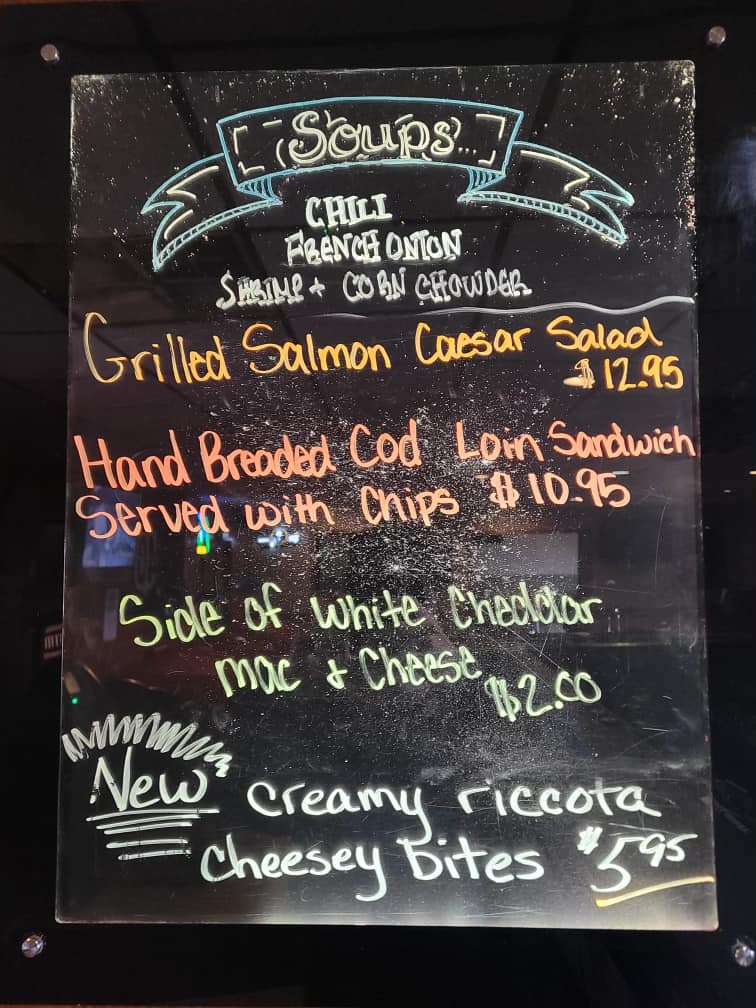 Soups...
CHILI
FRENCH ONION
SHRIMP + CORN CHOWDER
Grilled Salmon Caesar Salad
$12.95
Hand Breaded Cod Loin Sandwich
Served with Chips $10.95
Side of White Cheddar
Mac & Cheese
$2.00
New creamy riccota
Cheesey bites $5.95